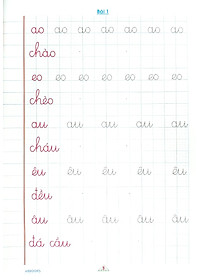 Bài 1
ao ao ao ao ao ao ao
chào
eo eo eo eo eo eo eo
chèo
au au au au au au
cháu
êu êu êu êu êu
đều
âu âu âu âu âu
đá cầu